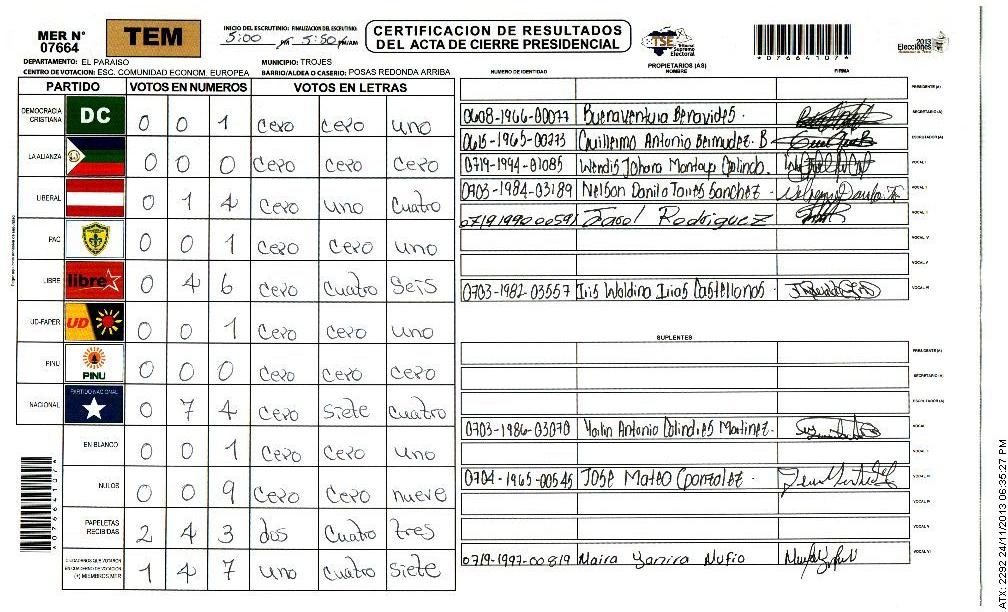 MER N° 07664
TEM
INICIO DEL ESCRUTINIO: FINALIZACION DEL ESCRUTINIO:
5:00 PM 5:50 PM/AM
CERTIFICACION DE RESULTADOS
DEL ACTA DE CIERRE PRESIDENCIAL
TSE Tribunal Supremo Electoral
*07664107*
2013 Elecciones
DEPARTAMENTO: EL PARAISO MUNICIPIO: TROJES
CENTRO DE VOTACION: ESC. COMUNIDAD ECONOM. EUROPEA BARRIO/ALDEA O CASERIO: POSAS REDONDA ARRIBA
PARTIDO VOTOS EN NUMEROS VOTOS EN LETRAS
DEMOCRACIA CRISTIANA DC 0 0 1 cero cero uno
LA ALIANZA 0 0 0 cero cero cero
LIBERAL 0 1 4 cero uno cuatro
PAC 0 0 1 cero cero uno
LIBRE libre 0 4 6 cero cuatro seis
UD-FAPER UD 0 0 1 cero cero uno
PINU PINU 0 0 0 cero cero cero
NACIONAL PARTIDO NACIONAL 0 7 4 cero siete cuatro
EN BLANCO 0 0 1 cero cero uno
NULOS 0 0 9 cero cero nueve
PAPELETAS RECIBIDAS 2 4 3 dos cuatro tres
CIUDADANOS QUE VOTARON EN CUADERNO DE VOTACION (+) MIEMBROS MER 1 4 7 uno cuatro siete
*07664107*
PROPIETARIOS (AS)
NUMERO DE IDENTIDAD NOMBRE FIRMA
PRESIDENTE (A)
0608-1966-00077 Buenaventura Benavides. SECRETARIO (A)
0615-1965-00273 Guillermo Antonio Bermudez. B ESCRUTADOR (A)
0719-1994-01085 Wendis Johana Montoya Galindo. VOCAL I
0703-1984-03189 Nelson Danilo Torres Sanchez VOCAL II
Rodriguez VOCAL III
VOCAL IV
VOCAL V
0703-1982-03557 Iris Waldina Irias Castellanos VOCAL VI
SUPLENTES
PRESIDENTE (A)
SECRETARIO (A)
ESCRUTADOR (A)
0703-1986-03070 Antonio Martinez. VOCAL
VOCAL II
0704-1965-00545 Jose Mateo Gonzalez VOCAL III
VOCAL IV
VOCAL V
0719-1997-00819 Maira Yanira Nufio VOCAL VI
ATX: 2292 24/11/2013 06:35:27 PM